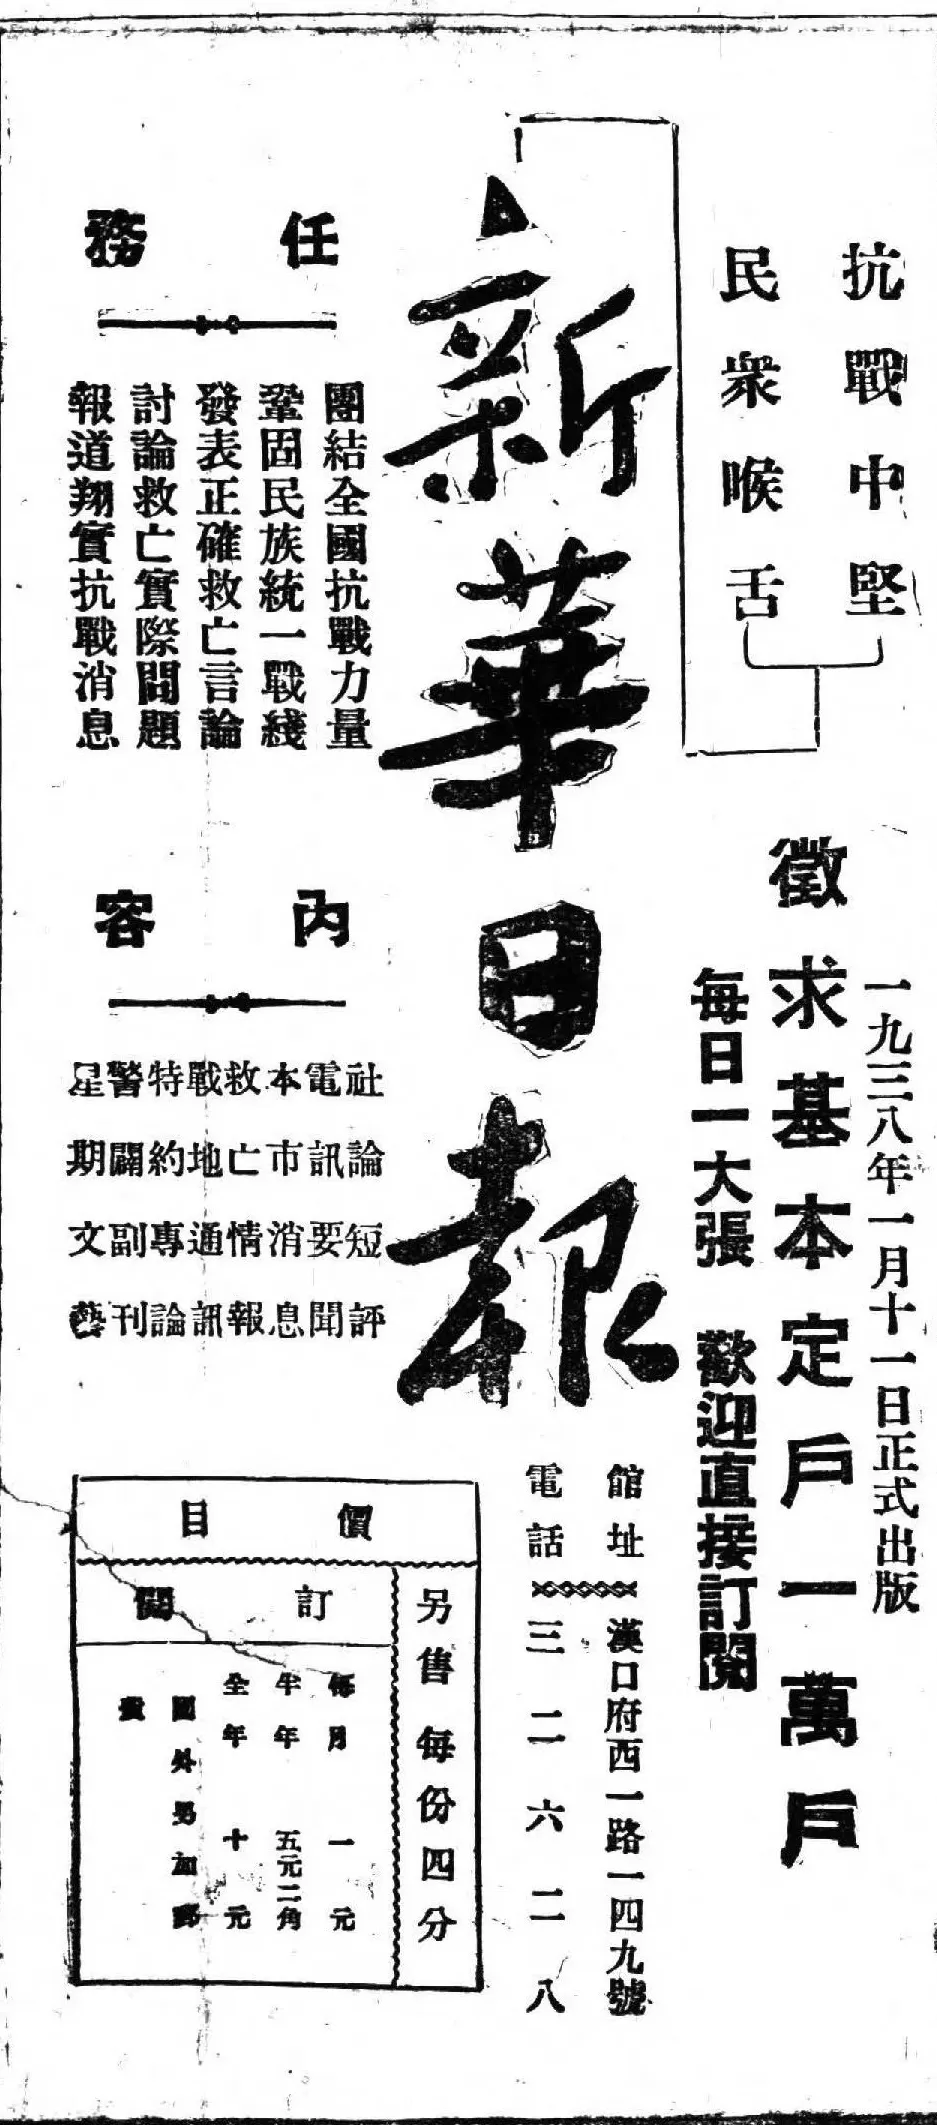 抗戰中堅
民衆喉舌
新華日報
一九三八年一月十一日正式出版
徵求基本定戶一萬戶
每日一大張 歡迎直接訂閱
任務
團結全國抗戰力量
鞏固民族統一戰綫
發表正確救亡言論
討論救亡實際問題
報道翔實抗戰消息
內容
社論短評
電訊要聞
本市消息
救亡情報
戰地通訊
特約專論
警闢副刊
星期文藝
館址 漢口府西一路一四九號
電話 三二六二八
價目
另售每份四分
訂閱
每月一元
半年五元二角
全年十元
國外另加郵
費